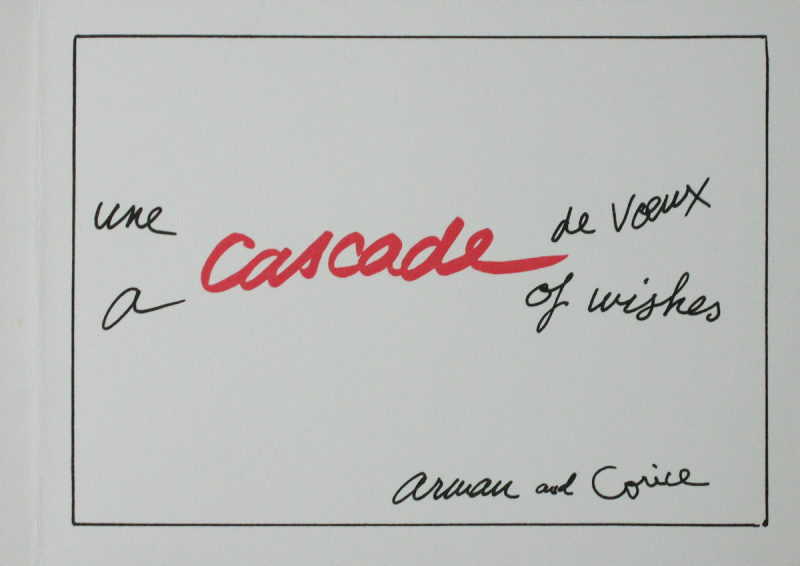 une cascade de vœux
a of wishes
arman and Corice